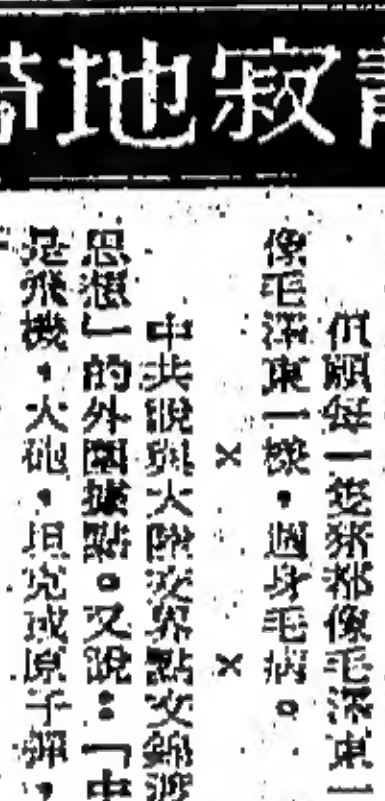 寂地
但願每一隻豬都像毛澤東一
像毛澤東一樣，週身毛病。
× ×
中共說與大陸交界點文錦渡
思想」的外圍據點。又說：「中
是飛機，大砲，坦克或原子彈，